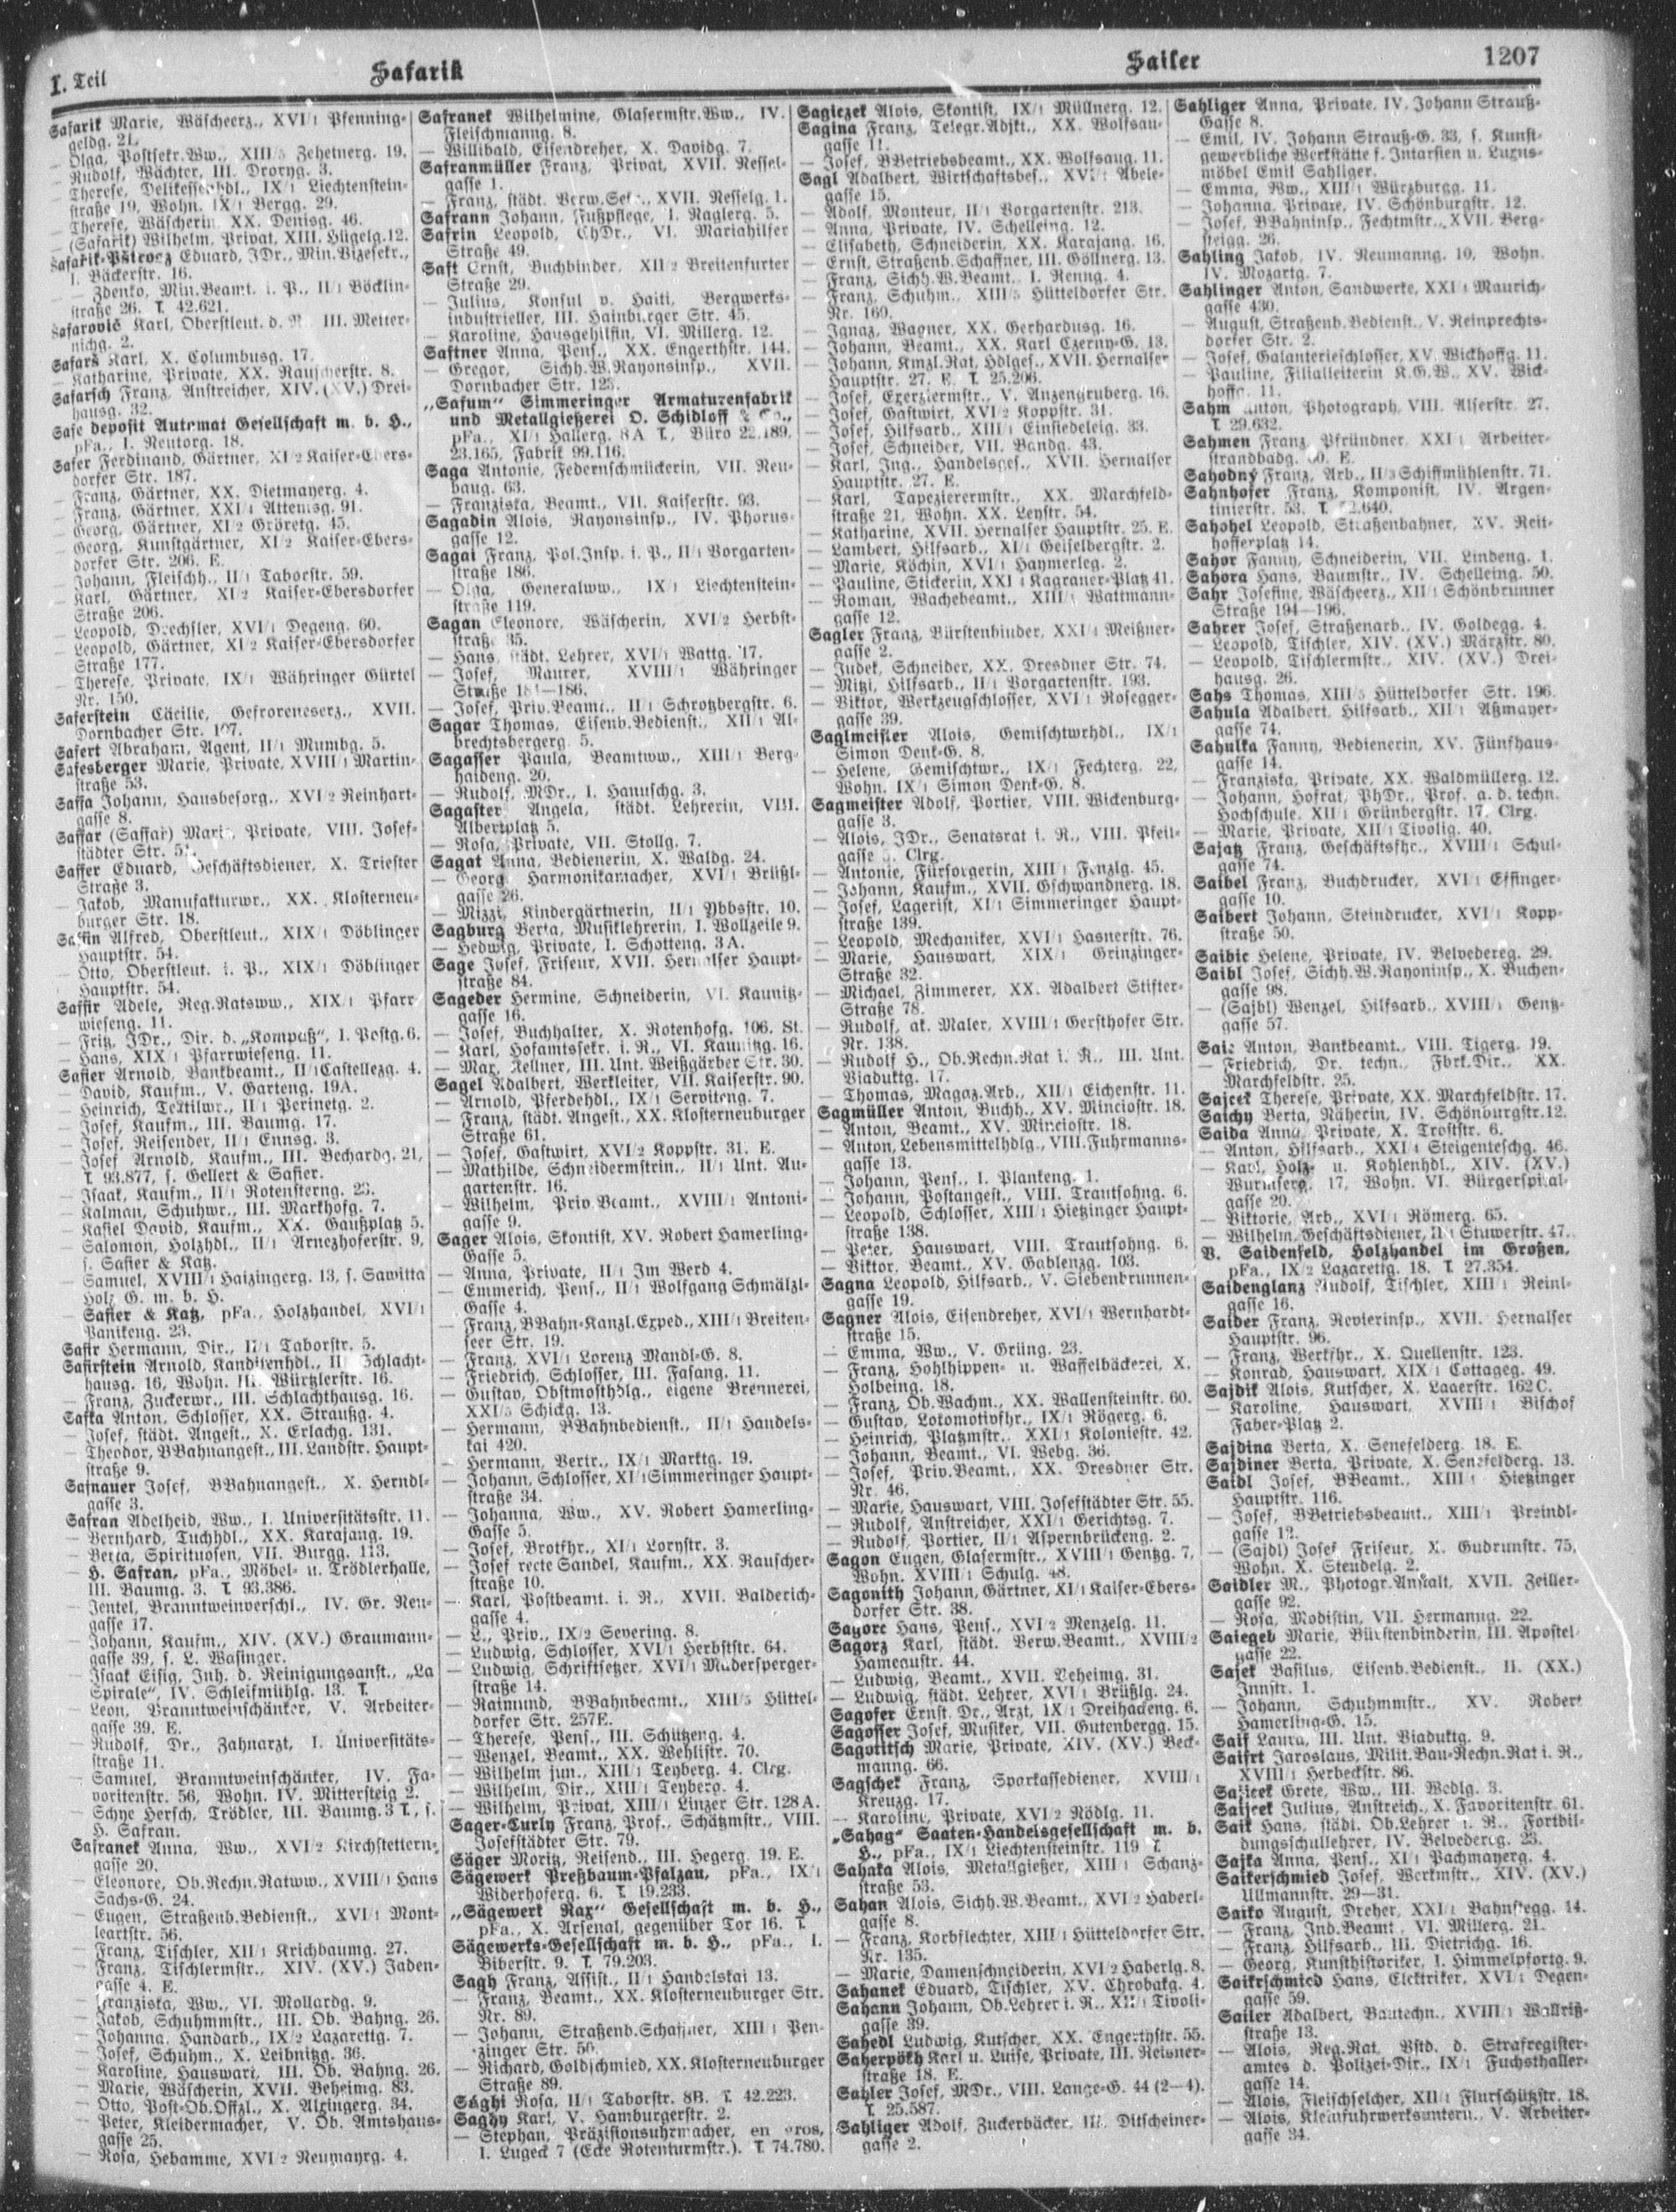 I. Teil
Safarik
Sailer
1207
Safarik Marie, Wäscheerz., XVI/1 Pfenning-
geldg. 21.
— Olga, Postsekr.Ww., XIII/5 Zehetnerg. 19.
— Rudolf, Wächter, III. Droryg. 3.
— Therese, Delikessenhdl., IX/1 Liechtenstein-
straße 19, Wohn. IX/1 Bergg. 29.
— Therese, Wäscherin, XX. Denisg. 46.
— (Safarik) Wilhelm, Privat, XIII. Hügelg.12.
Safarik-Pstrocz Eduard, JDr., Min.Vizesekr.,
I. Bäckerstr. 16.
— Zdenko, Min.Beamt. i. P., II/1 Böcklin-
straße 26. T. 42.621.
Safarovic Karl, Oberstleut. d. R. III. Metter-
nichg. 2.
Safars Karl, X. Columbusg. 17.
— Katharine, Private, XX. Rauscherstr. 8.
Safarsch Franz, Anstreicher, XIV. (XV.) Drei-
hausg. 32.
Safe deposit Automat Gesellschaft m. b. H.,
pFa., I. Neutorg. 18.
Safer Ferdinand, Gärtner, XI/2 Kaiser-Ebers-
dorfer Str. 187.
— Franz, Gärtner, XX. Dietmayerg. 4.
— Franz, Gärtner, XXI/1 Attemsg. 91.
— Georg, Gärtner, XI/2 Gröretg. 45.
— Georg, Kunstgärtner, XI/2 Kaiser-Ebers-
dorfer Str. 206. E.
— Johann, Fleischh., II/1 Taborstr. 59.
— Karl, Gärtner, XI/2 Kaiser-Ebersdorfer
Straße 206.
— Leopold, Drechsler, XVI/1 Degeng. 60.
— Leopold, Gärtner, XI/2 Kaiser-Ebersdorfer
Straße 177.
— Therese, Private, IX/1 Währinger Gürtel
Nr. 150.
Saferstein Cäcilie, Gefroreneserz., XVII.
Dornbacher Str. 107.
Safert Abraham, Agent, II/1 Mumbg. 5.
Safesberger Marie, Private, XVIII/1 Martin-
straße 53.
Saffa Johann, Hausbesorg., XVI/2 Reinhart-
gasse 8.
Saffar (Saffar) Marie, Private, VIII. Josef-
städter Str.
Saffer Eduard, Geschäftsdiener, X. Triester
Straße 3.
— Jakob, Manufakturwr., XX. Klosterneu-
burger Str. 18.
Saffin Alfred, Oberstleut., XIX/1 Döblinger
Hauptstr. 54.
— Otto, Oberstleut. i. P., XIX/1 Döblinger
Hauptstr. 54.
Saffir Adele, Reg.Ratsww., XIX/1 Pfarr
wieseng. 11.
— Fritz, JDr., Dir. d. „Kompaß“, I. Postg.6.
— Hans, XIX/1 Pfarrwieseng. 11.
Safier Arnold, Bankbeamt., II/1 Castellezg. 4.
— David, Kaufm., V. Garteng. 19A.
— Heinrich, Textilwr., II/1 Perinetg. 2.
— Josef, Kaufm., III. Baumg. 17.
— Josef, Reisender, II/1 Ennsg. 3.
— Josef Arnold, Kaufm., III. Bechardg. 21,
T. 93.877, s. Gellert & Safier.
— Isaak, Kaufm., II/1 Rotensterng. 23.
— Kalman, Schuhwr., III. Markhofg. 7.
— Kasiel David, Kaufm., XX. Gaußplatz 5.
— Salomon, Holzhdl., II/1 Arnezhoferstr. 9,
s. Safier & Katz.
— Samuel, XVIII/1 Haizingerg. 13, s. Sawitta
Holz G. m. b. H.
— Safier & Katz, pFa., Holzhandel, XVI/1
Panikeng. 23.
Safir Hermann, Dir., II/1 Taborstr. 5.
Safirstein Arnold, Kanditenhdl., III. Schlacht-
hausg. 16, Wohn. III. Würtzlerstr. 16.
— Franz, Zuckerwr., III. Schlachthausg. 16.
Safka Anton, Schlosser, XX. Straußg. 4.
— Josef, städt. Angest., X. Erlachg. 131.
— Theodor, BBahnangest., III. Landstr. Haupt-
straße 9.
Safnauer Josef, BBahnangest., X. Herndl-
gasse 3.
Safran Adelheid, Ww., I. Universitätsstr. 11.
— Bernhard, Tuchhdl., XX. Karajang. 19.
— Berta, Spirituosen, VII. Burgg. 113.
— H. Safran, pFa., Möbel- u. Trödlerhalle,
III. Baumg. 3. T. 93.386.
— Jentel, Branntweinverschl., IV. Gr. Neu-
gasse 17.
— Johann, Kaufm., XIV. (XV.) Graumann-
gasse 39, s. L. Wasinger.
— Isaak Eisig, Inh. d. Reinigungsanst., „La
Spirale“, IV. Schleifmühlg. 13. T.
— Leon, Branntweinschänker, V. Arbeiter-
gasse 39. E.
— Rudolf, Dr., Zahnarzt, I. Universitäts-
straße 11.
— Samuel, Branntweinschänker, IV. Fa-
voritenstr. 56, Wohn. IV. Mittersteig 2.
— Schye Hersch, Trödler, III. Baumg.3 T., s.
H. Safran.
Safranek Anna, Ww., XVI/2 Kirchstettern-
gasse 20.
— Eleonore, Ob.Rechn.Ratww., XVIII/1 Hans
Sachs-G. 24.
— Eugen, Straßenb.Bedienst., XVI/1 Mont-
leartstr. 56.
— Franz, Tischler, XII/1 Krichbaumg. 27.
— Franz, Tischlermstr., XIV. (XV.) Jaden-
gasse 4. E.
— Franziska, Ww., VI. Mollardg. 9.
— Jakob, Schuhmmstr., III. Ob. Bahng. 26.
— Johanna, Handarb., IX/2 Lazarettg. 7.
— Josef, Schuhm., X. Leibnitzg. 36.
— Karoline, Hauswart, III. Ob. Bahng. 26.
— Marie, Wäscherin, XVII. Beheimg. 83.
— Otto, Post-Ob.Offzl., X. Alxingerg. 34.
— Peter, Kleidermacher, V. Ob. Amtshaus-
gasse 25.
— Rosa, Hebamme, XVI/2 Neumayrg. 4.
Safranek Wilhelmine, Glasermstr.Ww., IV.
Fleischmanng. 8.
— Willibald, Eisendreher, X. Davidg. 7.
Safranmüller Franz, Privat, XVII. Nessel-
gasse 1.
— Franz, städt. Verw.Sekr., XVII. Nesselg. 1.
Safrann Johann, Fußpflege, I. Naglerg. 5.
Safrin Leopold, ChDr., VI. Mariahilfer
Straße 49.
Saft Ernst, Buchbinder, XII/2 Breitenfurter
Straße 29.
— Julius, Konsul v. Haiti, Bergwerks-
industrieller, III. Hainburger Str. 45.
— Karoline, Hausgehilfin, VI. Millerg. 12.
Saftner Anna, Pens., XX. Engerthstr. 144.
— Gregor, Sichh.W.Rayonsinsp., XVII.
Dornbacher Str. 123.
„Safum“ Simmeringer Armaturenfabrik
und Metallgießerei O. Schidloff & Co.,
pFa., XI/1 Hallerg. 8A T., Büro 22.189,
23.165, Fabrik 99.116.
Saga Antonie, Federnschmückerin, VII. Neu-
baug. 63.
— Franziska, Beamt., VII. Kaiserstr. 93.
Sagadin Alois, Rayonsinsp., IV. Phorus-
gasse 12.
Sagai Franz, Pol.Insp. i. P., II/1 Vorgarten-
straße 186.
— Olga, Generalww., IX/1 Liechtenstein-
straße 119.
Sagan Eleonore, Wäscherin, XVI/2 Herbst-
straße 35.
— Hans, städt. Lehrer, XVI/1 Wattg. 17.
— Josef, Maurer, XVIII/1 Währinger
Straße 184—186.
— Josef, Priv.Beamt., II/1 Schrotzbergstr. 6.
Sagar Thomas, Eisenb.Bedienst., XII/1 Al-
brechtsbergerg. 5.
Sagasser Paula, Beamtww., XIII/1 Berg-
haideng. 20.
— Rudolf, MDr., I. Hanuschg. 3.
Sagaster Angela, städt. Lehrerin, VIII.
Albertplatz 5.
— Rosa, Private, VII. Stollg. 7.
Sagat Anna, Bedienerin, X. Waldg. 24.
— Georg, Harmonikamacher, XVI/1 Brüßl-
gasse 26.
— Mizzi, Kindergärtnerin, II/1 Ybbsstr. 10.
Sagburg Berta, Musiklehrerin, I. Wollzeile 9.
— Hedwig, Private, I. Schotteng. 3A.
Sage Josef, Friseur, XVII. Hernalser Haupt-
straße 84.
Sageder Hermine, Schneiderin, VI. Kaunitz-
gasse 16.
— Josef, Buchhalter, X. Rotenhofg. 106. St.
— Karl, Hofamtssekr. i. R., VI. Kaunitzg. 16.
— Max, Kellner, III. Unt. Weißgärber Str. 30.
Sagel Adalbert, Werkleiter, VII. Kaiserstr. 90.
— Arnold, Pferdehdl., IX/1 Serviteng. 7.
— Franz, städt. Angest., XX. Klosterneuburger
Straße 61.
— Josef, Gastwirt, XVI/2 Koppstr. 31. E.
— Mathilde, Schneidermstrin., II/1 Unt. Au-
gartenstr. 16.
— Wilhelm, Priv.Beamt., XVIII/1 Antoni-
gasse 9.
Sager Alois, Skontist, XV. Robert Hamerling-
Gasse 5.
— Anna, Private, II/1 Im Werd 4.
— Emmerich, Pens., II/1 Wolfgang Schmälzl-
Gasse 4.
— Franz, BBahn-Kanzl.Exped., XIII/1 Breiten-
seer Str. 19.
— Franz, XVI/1 Lorenz Mandl-G. 8.
— Friedrich, Schlosser, III. Fasang. 11.
— Gustav, Obstmosthdlg., eigene Brennerei,
XXI/5 Schickg. 13.
— Hermann, BBahnbedienst., II/1 Handels-
kai 420.
— Hermann, Vertr., IX/1 Marktg. 19.
— Johann, Schlosser, XI/1 Simmeringer Haupt-
straße 34.
— Johanna, Ww., XV. Robert Hamerling-
Gasse 5.
— Josef, Brotfhr., XI/1 Lorystr. 3.
— Josef recte Sandel, Kaufm., XX. Rauscher-
straße 10.
— Karl, Postbeamt. i. R., XVII. Balderich-
gasse 4.
— L., Priv., IX/2 Severing. 8.
— Ludwig, Schlosser, XVI/1 Herbststr. 64.
— Ludwig, Schriftsetzer, XVI/1 Madersperger-
straße 14.
— Raimund, BBahnbeamt., XIII/5 Hüttel-
dorfer Str. 257E.
— Therese, Pens., III. Schützeng. 4.
— Wenzel, Beamt., XX. Wehlistr. 70.
— Wilhelm jun., XIII/1 Teyberg. 4. Clrg.
— Wilhelm, Dir., XIII/1 Teyberg. 4.
— Wilhelm, Privat, XIII/1 Linzer Str. 128A.
Sager-Curly Franz, Prof., Schätzmstr., VIII.
Josefstädter Str. 79.
Säger Moritz, Reisend., III. Hegerg. 19. E.
Sägewerk Preßbaum-Pfalzau, pFa., IX/1
Widerhoferg. 6. T. 19.233.
„Sägewerk Rax“ Gesellschaft m. b. H.,
pFa., X. Arsenal, gegenüber Tor 16. T.
Sägewerks-Gesellschaft m. b. H., pFa., I.
Biberstr. 9. T. 79.203.
Sagh Franz, Assist., II/1 Handelskai 13.
— Franz, Beamt., XX. Klosterneuburger Str.
Nr. 89.
— Johann, Straßenb.Schaffner, XIII/1 Pen-
zinger Str. 56.
— Richard, Goldschmied, XX. Klosterneuburger
Straße 89.
Sághi Rosa, II/1 Taborstr. 8B. T. 42.223.
Saghy Karl, V. Hamburgerstr. 2.
— Stephan, Präzisionsuhrmacher, en gros,
I. Lugeck 7 (Ecke Rotenturmstr.). T. 74.780.
Sagiczek Alois, Skontist, IX/1 Müllnerg. 12.
Sagina Franz, Telegr.Adjkt., XX. Wolfsau-
gasse 11.
— Josef, BBetriebsbeamt., XX. Wolfsaug. 11.
Sagl Adalbert, Wirtschaftsbes., XVI/1 Abele-
gasse 15.
— Adolf, Monteur, II/1 Vorgartenstr. 213.
— Anna, Private, IV. Schelleing. 12.
— Elisabeth, Schneiderin, XX. Karajang. 16.
— Ernst, Straßenb.Schaffner, III. Göllnerg. 13.
— Franz, Sichh.W.Beamt., I. Renng. 4.
— Franz, Schuhm., XIII/5 Hütteldorfer Str.
Nr. 169.
— Ignaz, Wagner, XX. Gerhardusg. 16.
— Johann, Beamt., XX. Karl Czerny-G. 13.
— Johann, Kmzl.Rat, Hdlges., XVII. Hernalser
Hauptstr. 27. E. T. 25.206.
— Josef, Exerziermstr., V. Anzengruberg. 16.
— Josef, Gastwirt, XVI/2 Koppstr. 31.
— Josef, Hilfsarb., XIII/1 Einsiedeleig. 33.
— Josef, Schneider, VII. Bandg. 43.
— Karl, Ing., Handelsges., XVII. Hernalser
Hauptstr. 27. E.
— Karl, Tapezierermstr., XX. Marchfeld-
straße 21, Wohn. XX. Leystr. 54.
— Katharine, XVII. Hernalser Hauptstr. 25. E.
— Lambert, Hilfsarb., XI/1 Geiselbergstr. 2.
— Marie, Köchin, XVI/1 Haymerleg. 2.
— Pauline, Stickerin, XXI/4 Kagraner-Platz 41.
— Roman, Wachebeamt., XIII/1 Wattmann-
gasse 12.
Sagler Franz, Bürstenbinder, XXI/4 Meißner-
gasse 2.
— Judek, Schneider, XX. Dresdner Str. 74.
— Mitzi, Hilfsarb., II/1 Vorgartenstr. 193.
— Viktor, Werkzeugschlosser, XVI/1 Rosegger-
gasse 39.
Saglmeister Alois, Gemischtwrhdl., IX/1
Simon Denk-G. 8.
— Helene, Gemischtwr., IX/1 Fechterg. 22,
Wohn. IX/1 Simon Denk-G. 8.
Sagmeister Adolf, Portier, VIII. Wickenburg-
gasse 3.
— Alois, JDr., Senatsrat i. R., VIII. Pfeil-
gasse 5. Clrg.
— Antonie, Fürsorgerin, XIII/1 Fenzlg. 45.
— Johann, Kaufm., XVII. Gschwandnerg. 18.
— Josef, Lagerist, XI/1 Simmeringer Haupt-
straße 139.
— Leopold, Mechaniker, XVI/1 Hasnerstr. 76.
— Marie, Hauswart, XIX/1 Grinzinger-
Straße 32.
— Michael, Zimmerer, XX. Adalbert Stifter-
Straße 78.
— Rudolf, ak. Maler, XVIII/1 Gersthofer Str.
Nr. 138.
— Rudolf H., Ob.Rechn.Rat i. R., III. Unt.
Viaduktg. 17.
— Thomas, Magaz.Arb., XII/1 Eichenstr. 11.
Sagmüller Anton, Buchh., XV. Minciostr. 18.
— Anton, Beamt., XV. Minciostr. 18.
— Anton, Lebensmittelhdlg., VIII. Fuhrmanns-
gasse 13.
— Johann, Pens., I. Plankeng. 1.
— Johann, Postangest., VIII. Trautsohng. 6.
— Leopold, Schlosser, XIII/1 Hietzinger Haupt-
straße 138.
— Peter, Hauswart, VIII. Trautsohng. 6.
— Viktor, Beamt., XV. Gablenzg. 103.
Sagna Leopold, Hilfsarb., V. Siebenbrunnen-
gasse 19.
Sagner Alois, Eisendreher, XVI/1 Wernhardt-
straße 15.
— Emma, Ww., V. Grüng. 23.
— Franz, Hohlhippen- u. Waffelbäckerei, X.
Holbeing. 18.
— Franz, Ob.Wachm., XX. Wallensteinstr. 60.
— Gustav, Lokomotivfhr., IX/1 Rögerg. 6.
— Heinrich, Platzmstr., XXI/1 Koloniestr. 42.
— Johann, Beamt., VI. Webg. 36.
— Josef, Priv.Beamt., XX. Dresdner Str.
Nr. 46.
— Marie, Hauswart, VIII. Josefstädter Str. 55.
— Rudolf, Anstreicher, XXI/1 Gerichtsg. 7.
— Rudolf, Portier, II/1 Aspernbrückeng. 2.
Sagon Eugen, Glasermstr., XVIII/1 Gentzg. 7,
Wohn. XVIII/1 Schulg. 48.
Sagonith Johann, Gärtner, XI/1 Kaiser-Ebers-
dorfer Str. 38.
Sagore Hans, Pens., XVI/2 Menzelg. 11.
Sagorz Karl, städt. Verw.Beamt., XVIII/2
Hameaustr. 44.
— Ludwig, Beamt., XVII. Beheimg. 31.
— Ludwig, städt. Lehrer, XVI/1 Brüßlg. 24.
Sagoser Ernst, Dr., Arzt, IX/1 Dreihackeng. 6.
Sagosser Josef, Musiker, VII. Gutenbergg. 15.
Sagoritsch Marie, Private, XIV. (XV.) Beck-
manng. 66.
Sagschek Franz, Sparkassediener, XVIII/1
Kreuzg. 17.
— Karoline, Private, XVI/2 Rödlg. 11.
„Sahag“ Saaten-Handelsgesellschaft m. b.
H., pFa., IX/1 Liechtensteinstr. 119 T.
Sahaka Alois, Metallgießer, XIII/1 Schanz-
straße 53.
Sahan Alois, Sichh.W.Beamt., XVI/2 Haberl-
gasse 8.
— Franz, Korbflechter, XIII/1 Hütteldorfer Str.
Nr. 135.
— Marie, Damenschneiderin, XVI/2 Haberlg. 8.
Sahanek Eduard, Tischler, XV. Chrobakg. 4.
Sahann Johann, Ob.Lehrer i. R., XII/1 Tivoli-
gasse 39.
Sahedl Ludwig, Kutscher, XX. Engerthstr. 55.
Saherpökh Karl u. Luise, Private, III. Reisner-
straße 18. E.
Sahler Josef, MDr., VIII. Lange-G. 44 (2—4).
T. 25.587.
Sahliger Adolf, Zuckerbäcker, III. Ditscheiner-
gasse 2.
Sahliger Anna, Private, IV. Johann Strauß-
Gasse 8.
— Emil, IV. Johann Strauß-G. 33, s. Kunst-
gewerbliche Werkstätte f. Intarsien u. Luxus-
möbel Emil Sahliger.
— Emma, Ww., XIII/1 Würzburgg. 11.
— Johanna, Private, IV. Schönburgstr. 12.
— Josef, BBahninsp., Fechtmstr., XVII. Berg-
steigg. 26.
Sahling Jakob, IV. Neumanng. 10, Wohn.
IV. Mozartg. 7.
Sahlinger Anton, Sandwerke, XXI/1 Maurich-
gasse 430.
— August, Straßenb.Bedienst., V. Reinprechts-
dorfer Str. 2.
— Josef, Galanterieschlosser, XV. Wickhoffg. 11.
— Pauline, Filialleiterin K.G.W., XV. Wick-
hoffg. 11.
Sahm Anton, Photograph, VIII. Alserstr. 27.
T. 29.632.
Sahmen Franz, Pfründner, XXI/1 Arbeiter-
strandbadg. E.
Sahodný Franz, Arb., II/3 Schiffmühlenstr. 71.
Sahnhofer Franz, Komponist, IV. Argen-
tinierstr. 53. T.
Sahohel Leopold, Straßenbahner, XV. Reit-
hofferplatz 14.
Sahor Fanny, Schneiderin, VII. Lindeng. 1.
Sahora Hans, Baumstr., IV. Schelleing. 50.
Sahr Josefine, Wäscheerz., XII/1 Schönbrunner
Straße 194—196.
Sahrer Josef, Straßenarb., IV. Goldegg. 4.
— Leopold, Tischler, XIV. (XV.) Märzstr. 80.
— Leopold, Tischlermstr., XIV. (XV.) Drei-
hausg. 26.
Sahs Thomas, XIII/5 Hütteldorfer Str. 196.
Sahula Adalbert, Hilfsarb., XII/1 Aßmayer-
gasse 74.
Sahulka Fanny, Bedienerin, XV. Fünfhaus-
gasse 14.
— Franziska, Private, XX. Waldmüllerg. 12.
— Johann, Hofrat, PhDr., Prof. a. d. techn.
Hochschule, XII/1 Grünbergstr. 17. Clrg.
— Marie, Private, XII/1 Tivolig. 40.
Sajatz Franz, Geschäftsfhr., XVIII/1 Schul-
gasse 74.
Saibel Franz, Buchdrucker, XVI/1 Effinger-
gasse 10.
Saibert Johann, Steindrucker, XVI/1 Kopp-
straße 50.
Saibic Helene, Private, IV. Belvedereg. 29.
Saibl Josef, Sichh.W.Rayoninsp., X. Buchen-
gasse 98.
— (Sajbl) Wenzel, Hilfsarb., XVIII/1 Gentz-
gasse 57.
Saic Anton, Bankbeamt., VIII. Tigerg. 19.
— Friedrich, Dr. techn., Fbrk.Dir., XX.
Marchfeldstr. 25.
Sajcek Therese, Private, XX. Marchfeldstr. 17.
Saichy Berta, Näherin, IV. Schönburgstr.12.
Saida Anna, Private, X. Troststr. 6.
— Anton, Hilfsarb., XXI/1 Steigenteschg. 46.
— Karl, Holz- u. Kohlenhdl., XIV. (XV.)
Wurmserg. 17, Wohn. VI. Bürgerspital-
gasse 20.
— Viktorie, Arb., XVI/1 Römerg. 65.
— Wilhelm, Geschäftsdiener, II/1 Stuwerstr. 47.
B. Saidenfeld, Holzhandel im Großen,
pFa., IX/2 Lazarettg. 18. T. 27.354.
Saidenglanz Rudolf, Tischler, XIII/1 Reinl-
gasse 16.
Saider Franz, Revierinsp., XVII. Hernalser
Hauptstr. 96.
— Franz, Werkfhr., X. Quellenstr. 123.
— Konrad, Hauswart, XIX/1 Cottageg. 49.
Sajdik Alois, Kutscher, X. Laaerstr. 162C.
— Karoline, Hauswart, XVIII/1 Bischof
Faber-Platz 2.
Sajdina Berta, X. Senefelderg. 18. E.
Sajdiner Berta, Private, X. Senefelderg. 13.
Saidl Josef, BBeamt., XIII/1 Hietzinger
Hauptstr. 116.
— Josef, BBetriebsbeamt., XIII/1 Preindl-
gasse 12.
— (Sajdl) Josef, Friseur, X. Gudrunstr. 75,
Wohn. X. Steudelg. 2.
Saidler M., Photogr.Anstalt, XVII. Zeiller-
gasse 92.
— Rosa, Modistin, VII. Hermanng. 22.
Saiegeb Marie, Bürstenbinderin, III. Apostel-
gasse 22.
Sajek Basilus, Eisenb.Bedienst., II. (XX.)
Innstr. 1.
— Johann, Schuhmmstr., XV. Robert
Hamerling-G. 15.
Saif Laura, III. Unt. Viaduktg. 9.
Saifrt Jaroslaus, Milit.Bau-Rechn.Rat i. R.,
XVIII/1 Herbeckstr. 86.
Saijcek Grete, Ww., III. Wedlg. 3.
Saijcek Julius, Anstreich., X. Favoritenstr. 61.
Saik Hans, städt. Ob.Lehrer i. R., Fortbil-
dungsschullehrer, IV. Belvedereg. 23.
Sajka Anna, Pens., XI/1 Pachmayerg. 4.
Saikerschmied Josef, Werkmstr., XIV. (XV.)
Ullmannstr. 29—31.
Saiko August, Dreher, XXI/1 Bahnstegg. 14.
— Franz, Ind.Beamt., VI. Millerg. 21.
— Franz, Hilfsarb., III. Dietrichg. 16.
— Georg, Kunsthistoriker, I. Himmelpfortg. 9.
Saikrschmied Hans, Elektriker, XVI/1 Degen-
gasse 59.
Sailer Adalbert, Bautechn., XVIII/1 Wallriß-
straße 13.
— Alois, Reg.Rat, Vstd. d. Strafregister-
amtes d. Polizei-Dir., IX/1 Fuchsthaller-
gasse 14.
— Alois, Fleischselcher, XII/1 Flurschützstr. 18.
— Alois, Kleinfuhrwerksuntern., V. Arbeiter-
gasse 34.